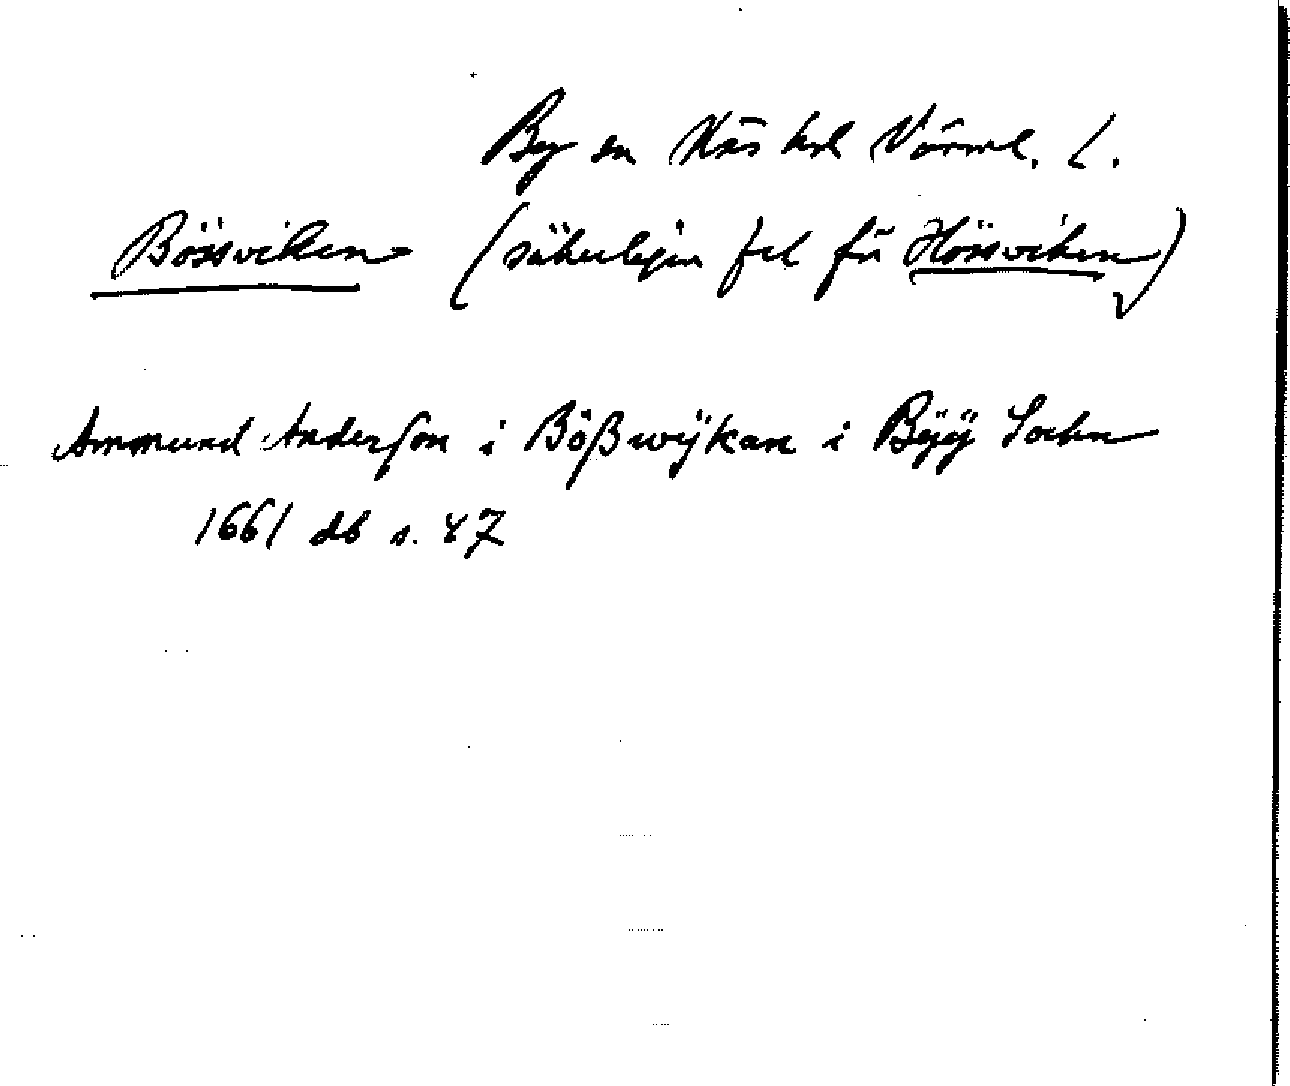 By sn Näs hd Värml. L.
Bössviken (säkerligen fel för Hössviken)
Ammund Anderson i Bößwÿkan i Bÿÿ Sochn
1661 db s. 47